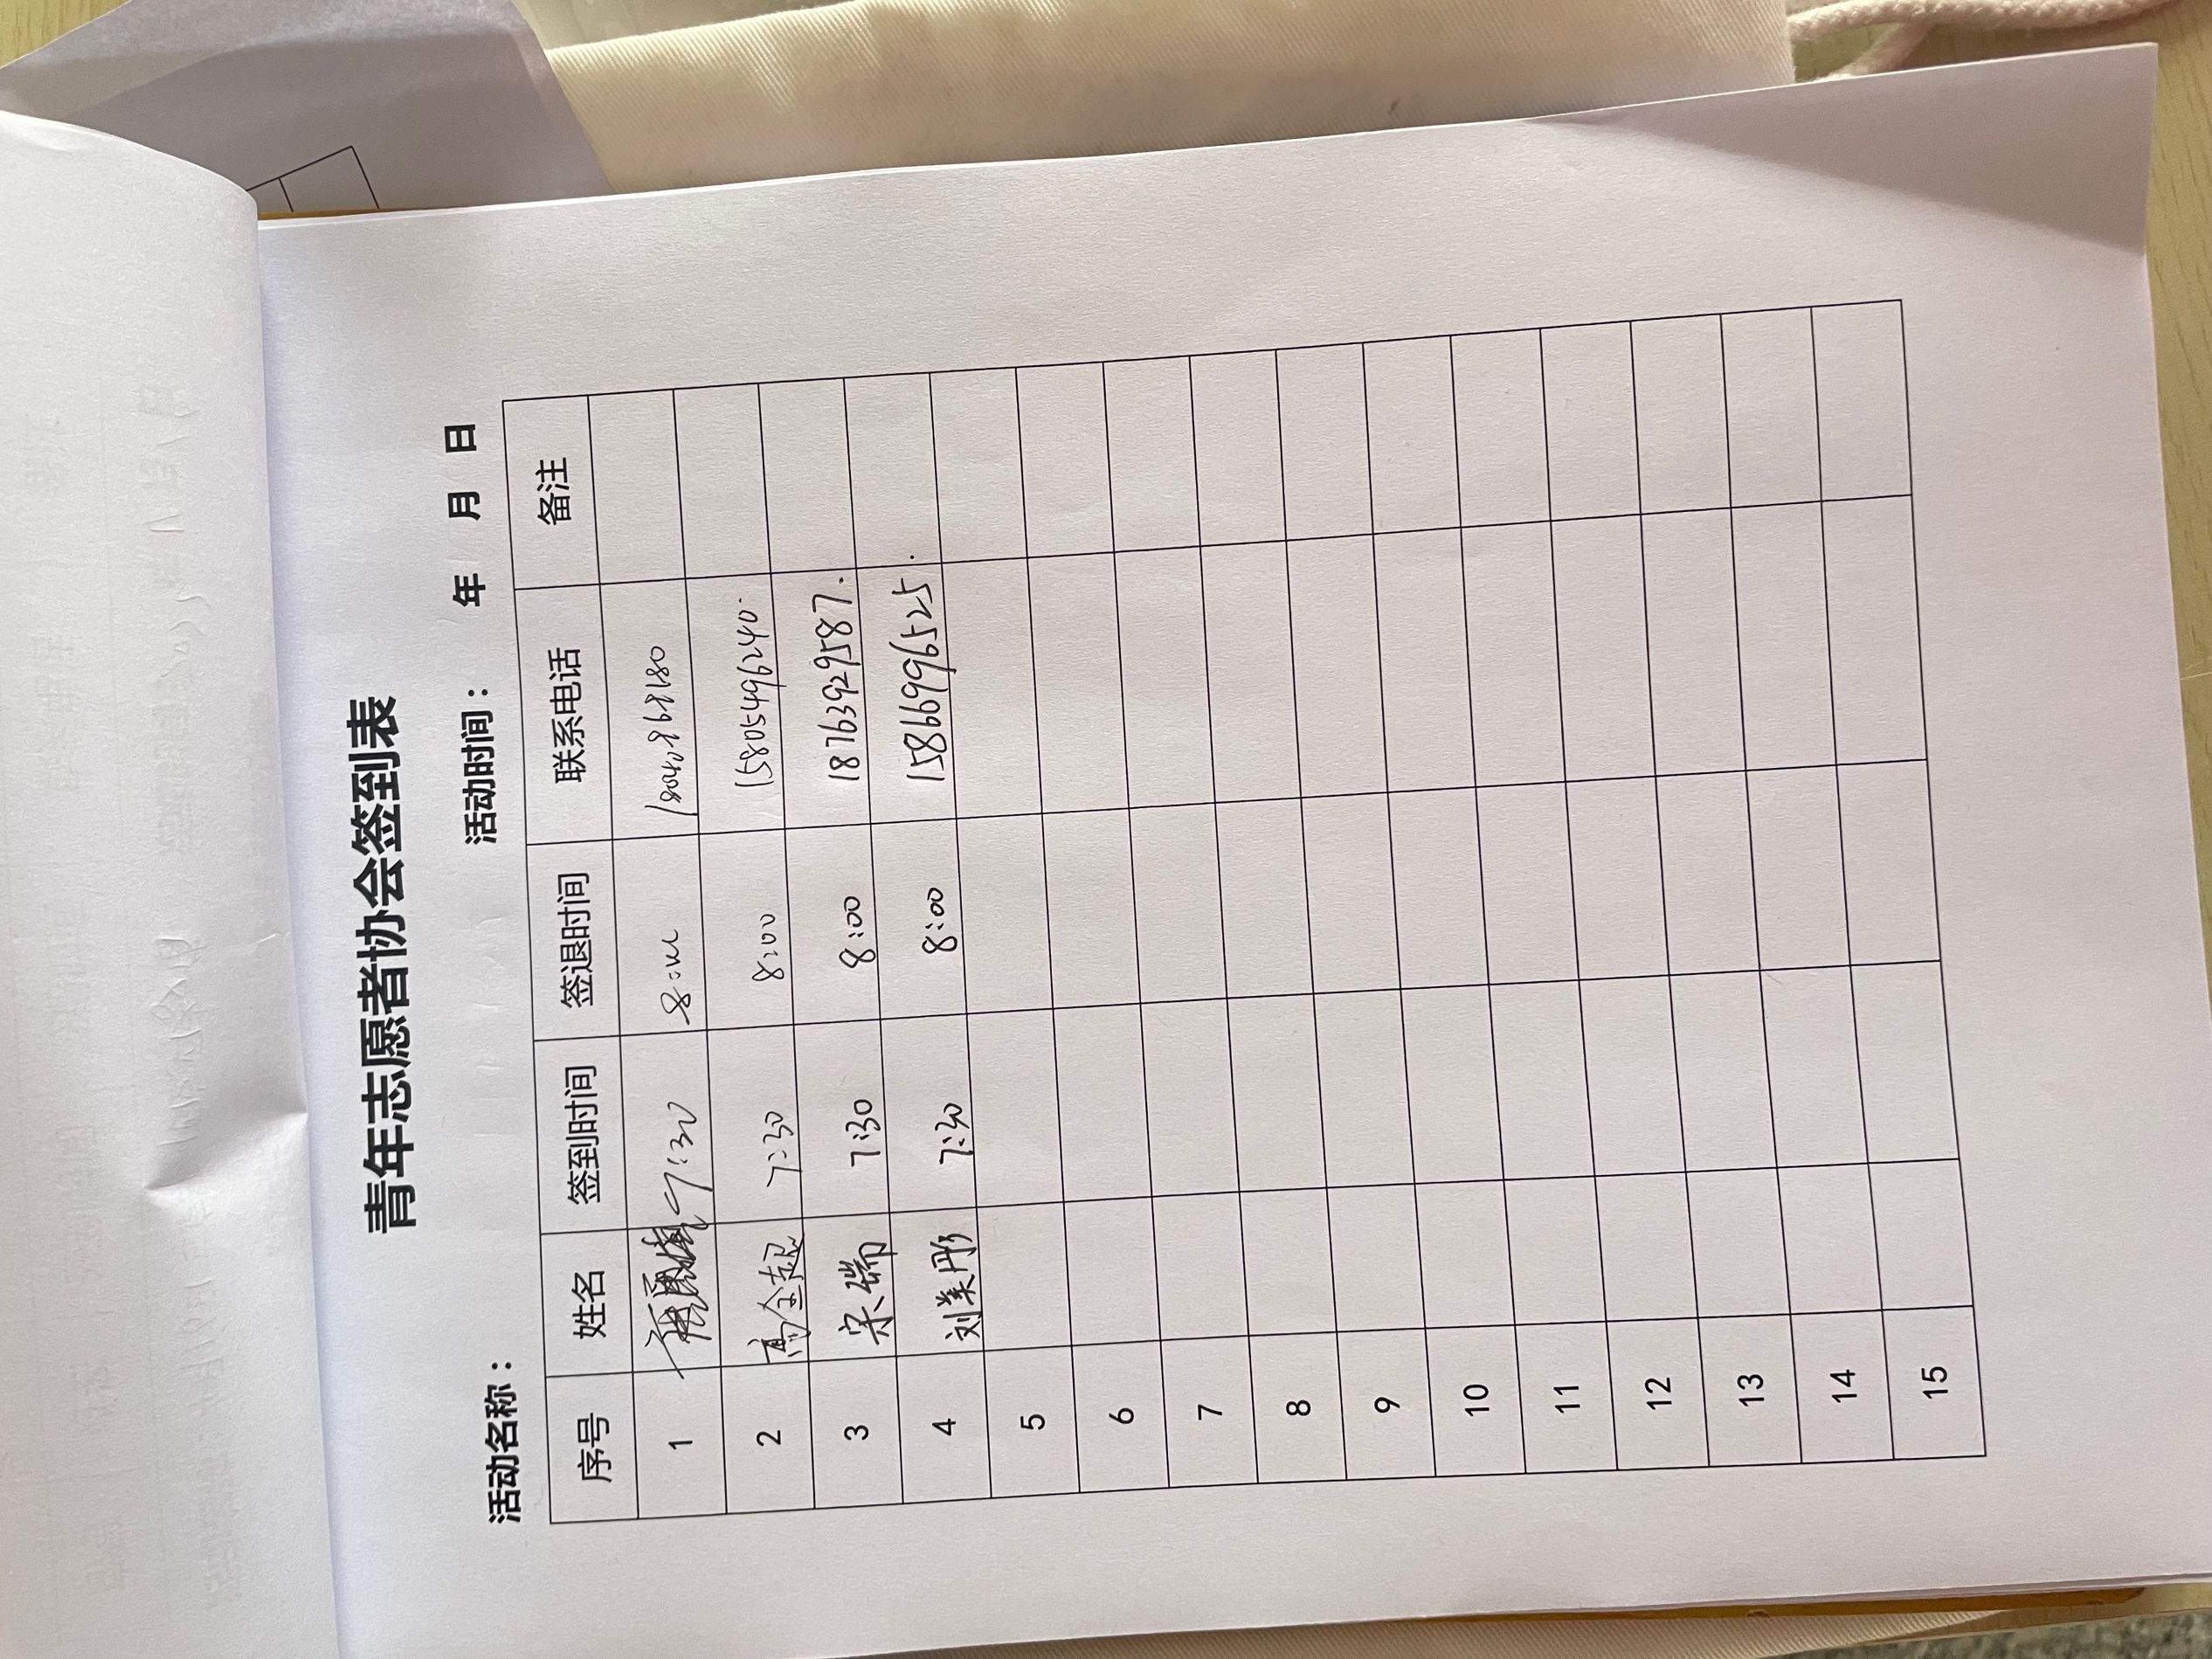 青年志愿者协会签到表
活动名称： 活动时间： 年 月 日
序号 姓名 签到时间 签退时间 联系电话 备注
1 7:30 8:00
2 高金超 7:30 8:00 15805496240.
3 宋瑞 7:30 8:00 18763929587.
4 刘美彤 7:30 8:00 15866996525.
5
6
7
8
9
10
11
12
13
14
15